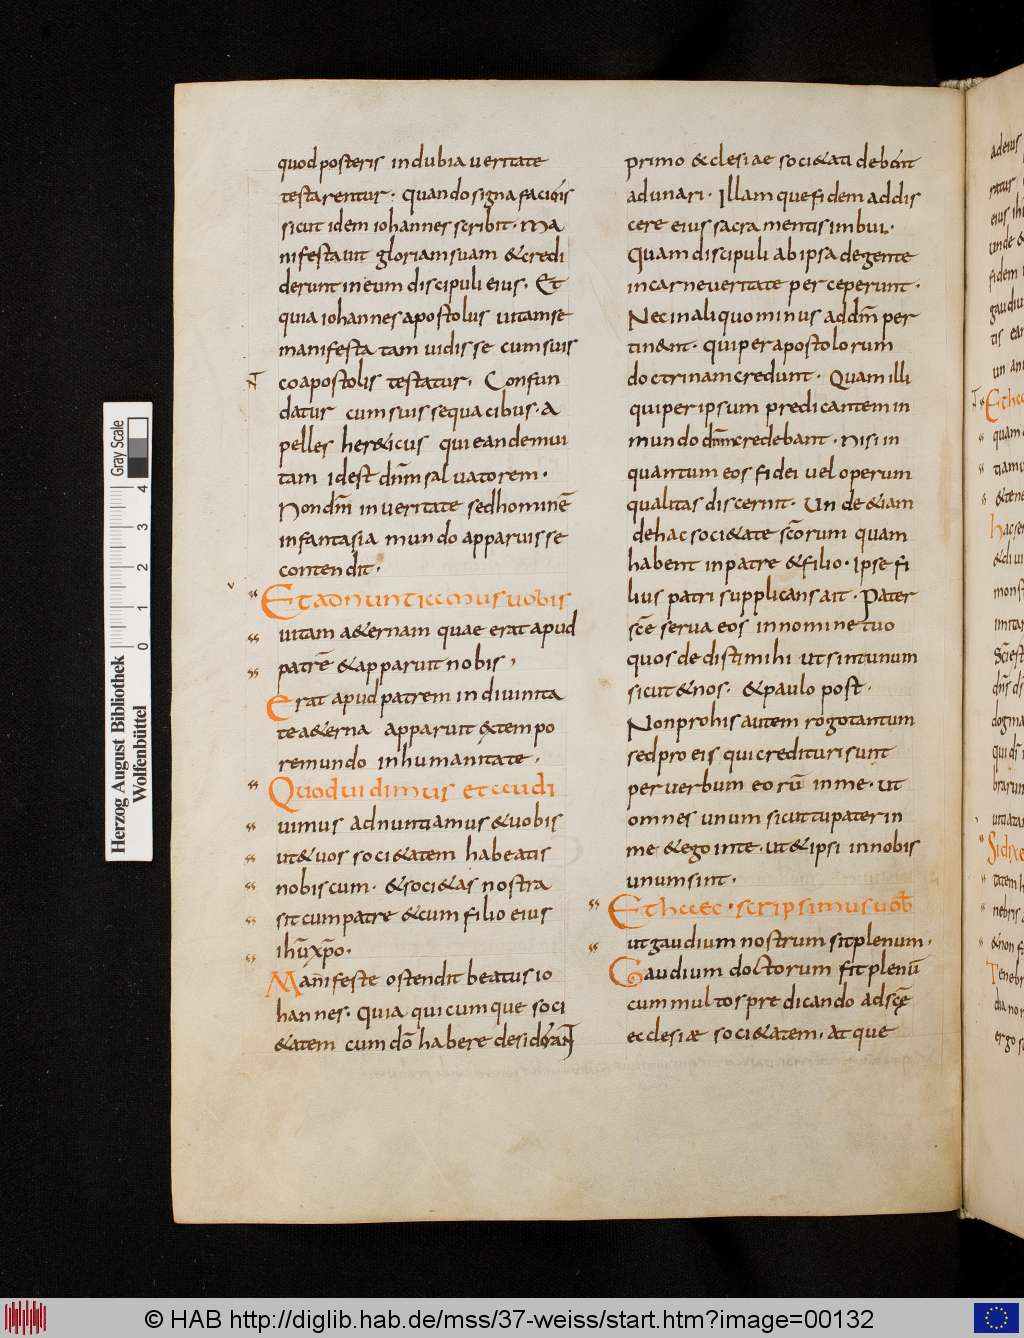 quod posteris indubia ueritate
testarentur. quando signa faciens
sicut idem iohannes scribit. Ma
nifestauit gloriam suam & credi
derunt in eum discipuli eius. Et
quia iohannes apostolus uitam se
manifesta tam uidisse cum suis
coapostolis testatur. Confun
datur cum suis sequacibus. A
pelles her&icus qui eandem ui
tam id est dn̄m saluatorem.
Non dm̄ in ueritate sed hominē
in fantasia mundo apparuisse
contendit.
Et adnuntiamus uobis
uitam a&ernam quae erat apud
patrē & apparuit nobis,
Erat apud patrem in diuinita
te a&erna apparuit ex tempo
re mundo in humanitate,
Quod uidimus et audi
uimus adnuntiamus & uobis
ut & uos soci&atem habeatis
nobiscum. & soci&as nostra
sit cum patre & cum filio eius
ihū xp̄o.
Manifeste ostendit beatus io
hannes. quia quicumque soci
&atem cum dō habere desiderant
primo &clesiae soci&ati debent
adunari. Illamque fidem addis
cere eius sacramentis imbui.
Quam discipuli ab ipsa degente
in carne ueritate perceperunt.
Nec in aliquo minus ad dm̄ per
tin&nt. qui per apostolorum
doctrinam credunt. Quam illi
qui per ipsum predicantem in
mundo dn̄m credebant. nisi in
quantum eos fidei uel operum
qualitas discernit. Unde & iam
de hac soci&ate sc̄orum quam
habent in patre & filio. Ipse fi
lius patri supplicans ait. Pater
sc̄e serua eos in nomine tuo
quos dedisti mihi ut sint unum
sicut & nos. & paulo post.
Non pro his autem rogo tantum
sed pro eis qui credituri sunt
per uerbum eorū in me. ut
omnes unum sicut tu pater in
me & ego in te. ut & ipsi in nobis
unum sint.
Et haec scripsimus uob̄
ut gaudium nostrum sit plenum.
Gaudium doctorum fit plenū
cum multos predicando ad sc̄ę
ecclesiae soci&atem. atque
Gray Scale
4
3
2
1
0
Herzog August Bibliothek
Wolfenbüttel
© HAB http://diglib.hab.de/mss/37-weiss/start.htm?image=00132